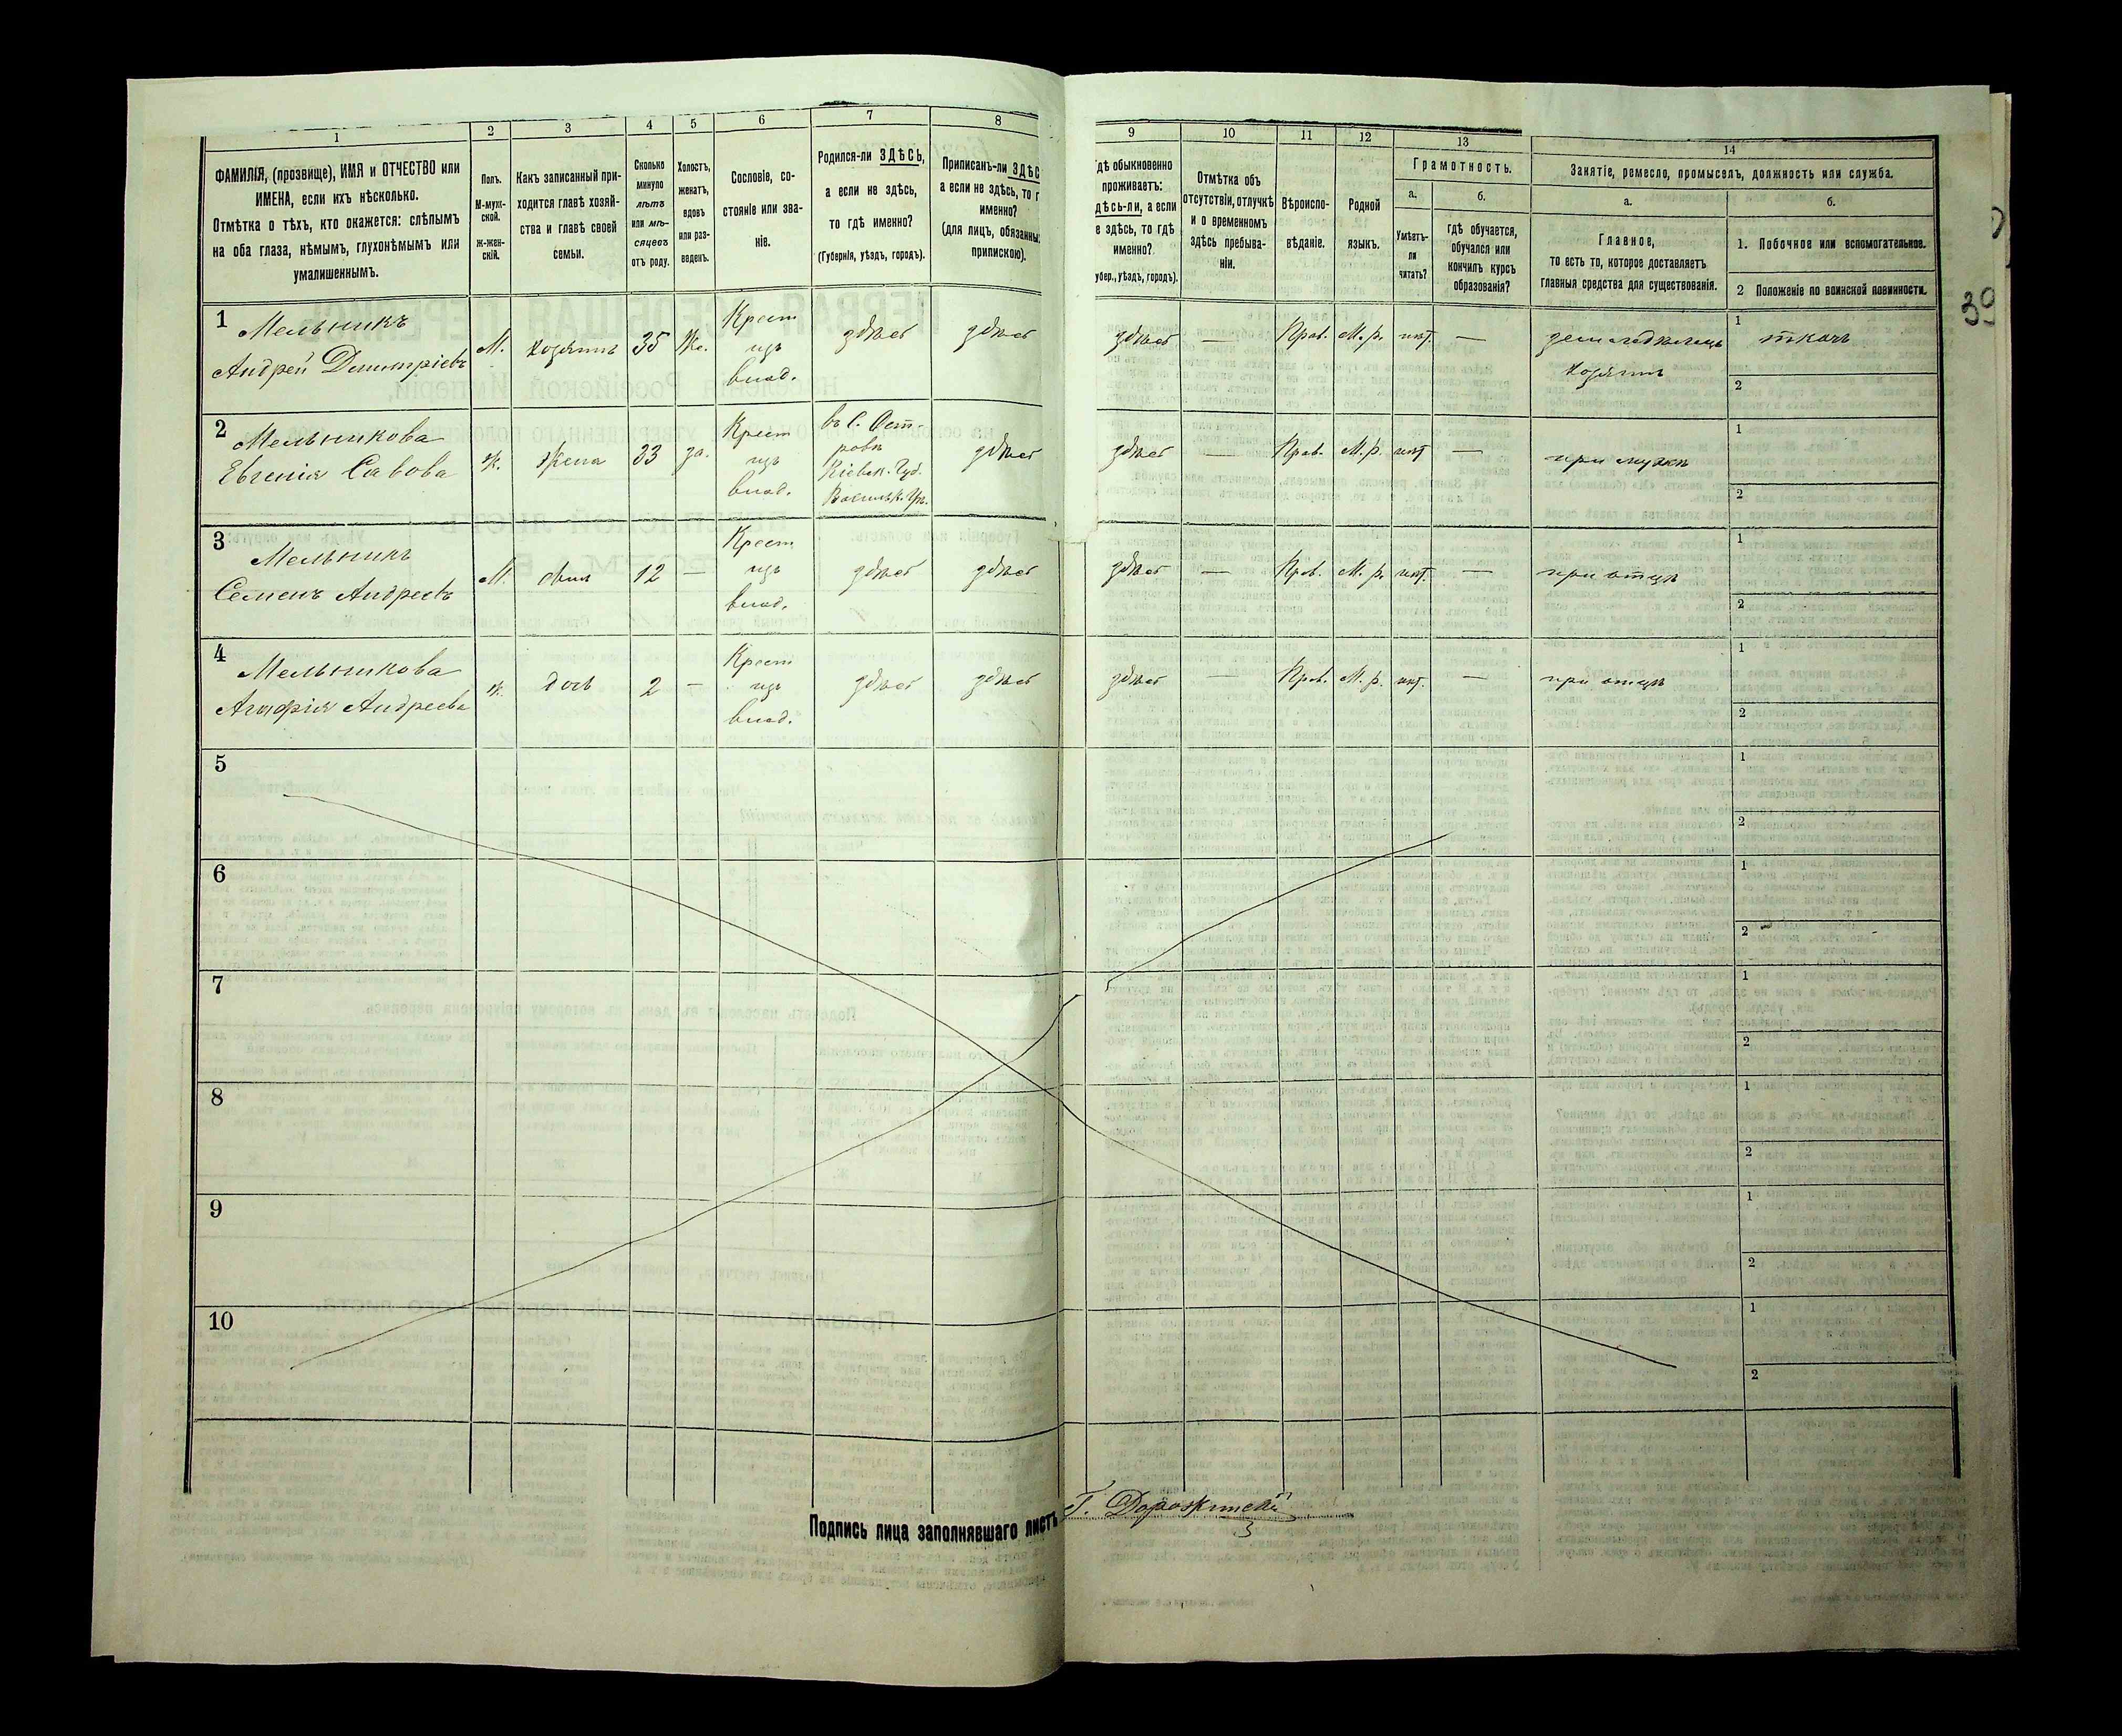 1
2
3
4
5
6
7
8
9
10
11
12
13
14
ФАМИЛІЯ, (прозвище), ИМЯ и ОТЧЕСТВО или
ИМЕНА, если ихъ нѣсколько.
Отмѣтка о тѣхъ, кто окажется: слѣпымъ
на оба глаза, нѣмымъ, глухонѣмымъ или
умалишеннымъ.
Полъ.
М-муж-
ской.
Ж-жен-
скій.
Какъ записанный при-
ходится главѣ хозяй-
ства и главѣ своей
семьи.
Сколько
минуло
лѣтъ
или мѣ-
сяцевъ
отъ роду.
Холостъ,
женатъ,
вдовъ
или раз-
веденъ.
Сословіе, со-
стояніе или зва-
ніе.
Родился-ли ЗДѢСЬ,
а если не здѣсь,
то гдѣ именно?
(Губернія, уѣздъ, городъ).
Приписанъ-ли ЗДѢС
а если не здѣсь, то г
именно?
(для лицъ, обязанны
припискою).
дѣ обыкновенно
проживаетъ:
дѣсь-ли, а если
е здѣсь, то гдѣ
именно?
убер., уѣздъ, городъ).
Отмѣтка объ
отсутствіи, отлучкѣ
и о временномъ
здѣсь пребыва-
ніи.
Вѣроиспо-
вѣданіе.
Родной
языкъ.
Грамотность.
а.
б.
Умѣетъ-
ли
читать?
гдѣ обучается,
обучался или
кончилъ курсъ
образованія?
Занятіе, ремесло, промыселъ, должность или служба.
а.
б.
Главное,
то есть то, которое доставляетъ
главныя средства для существованія.
1. Побочное или вспомогательное.
2 Положеніе по воинской повинности.
1 Мельникъ
Андрей Димитріевъ
М.
хозяинъ
35
Же.
Крест
изъ
влад.
здѣсь
здѣсь
здѣсь
—
Прав.
М. р.
нѣт.
—
земледѣлецъ
хозяинъ
1
ткачъ
2
39
2 Мельникова
Евгенія Савова
Ж.
жена
33
за.
Крест
изъ
влад.
въ С. Ост-
ровѣ
Кіевск. Губ.
Васильк. Уѣз.
здѣсь
здѣсь
—
Прав.
М. р.
нѣт
—
при мужѣ
1
2
3 Мельникъ
Семенъ Андреевъ
М.
сынъ
12
—
Крест
изъ
влад.
здѣсь
здѣсь
здѣсь
—
Прав.
М. р.
нѣт.
—
при отцѣ
1
2
4 Мельникова
Агафія Андреева
Ж.
дочь
2
—
Крест
изъ
влад.
здѣсь
здѣсь
здѣсь
—
Прав.
М. р.
нѣт.
—
при отцѣ
1
2
5
1
2
6
1
2
7
1
2
8
1
2
9
1
2
10
1
2
Подпись лица заполнявшаго листъ